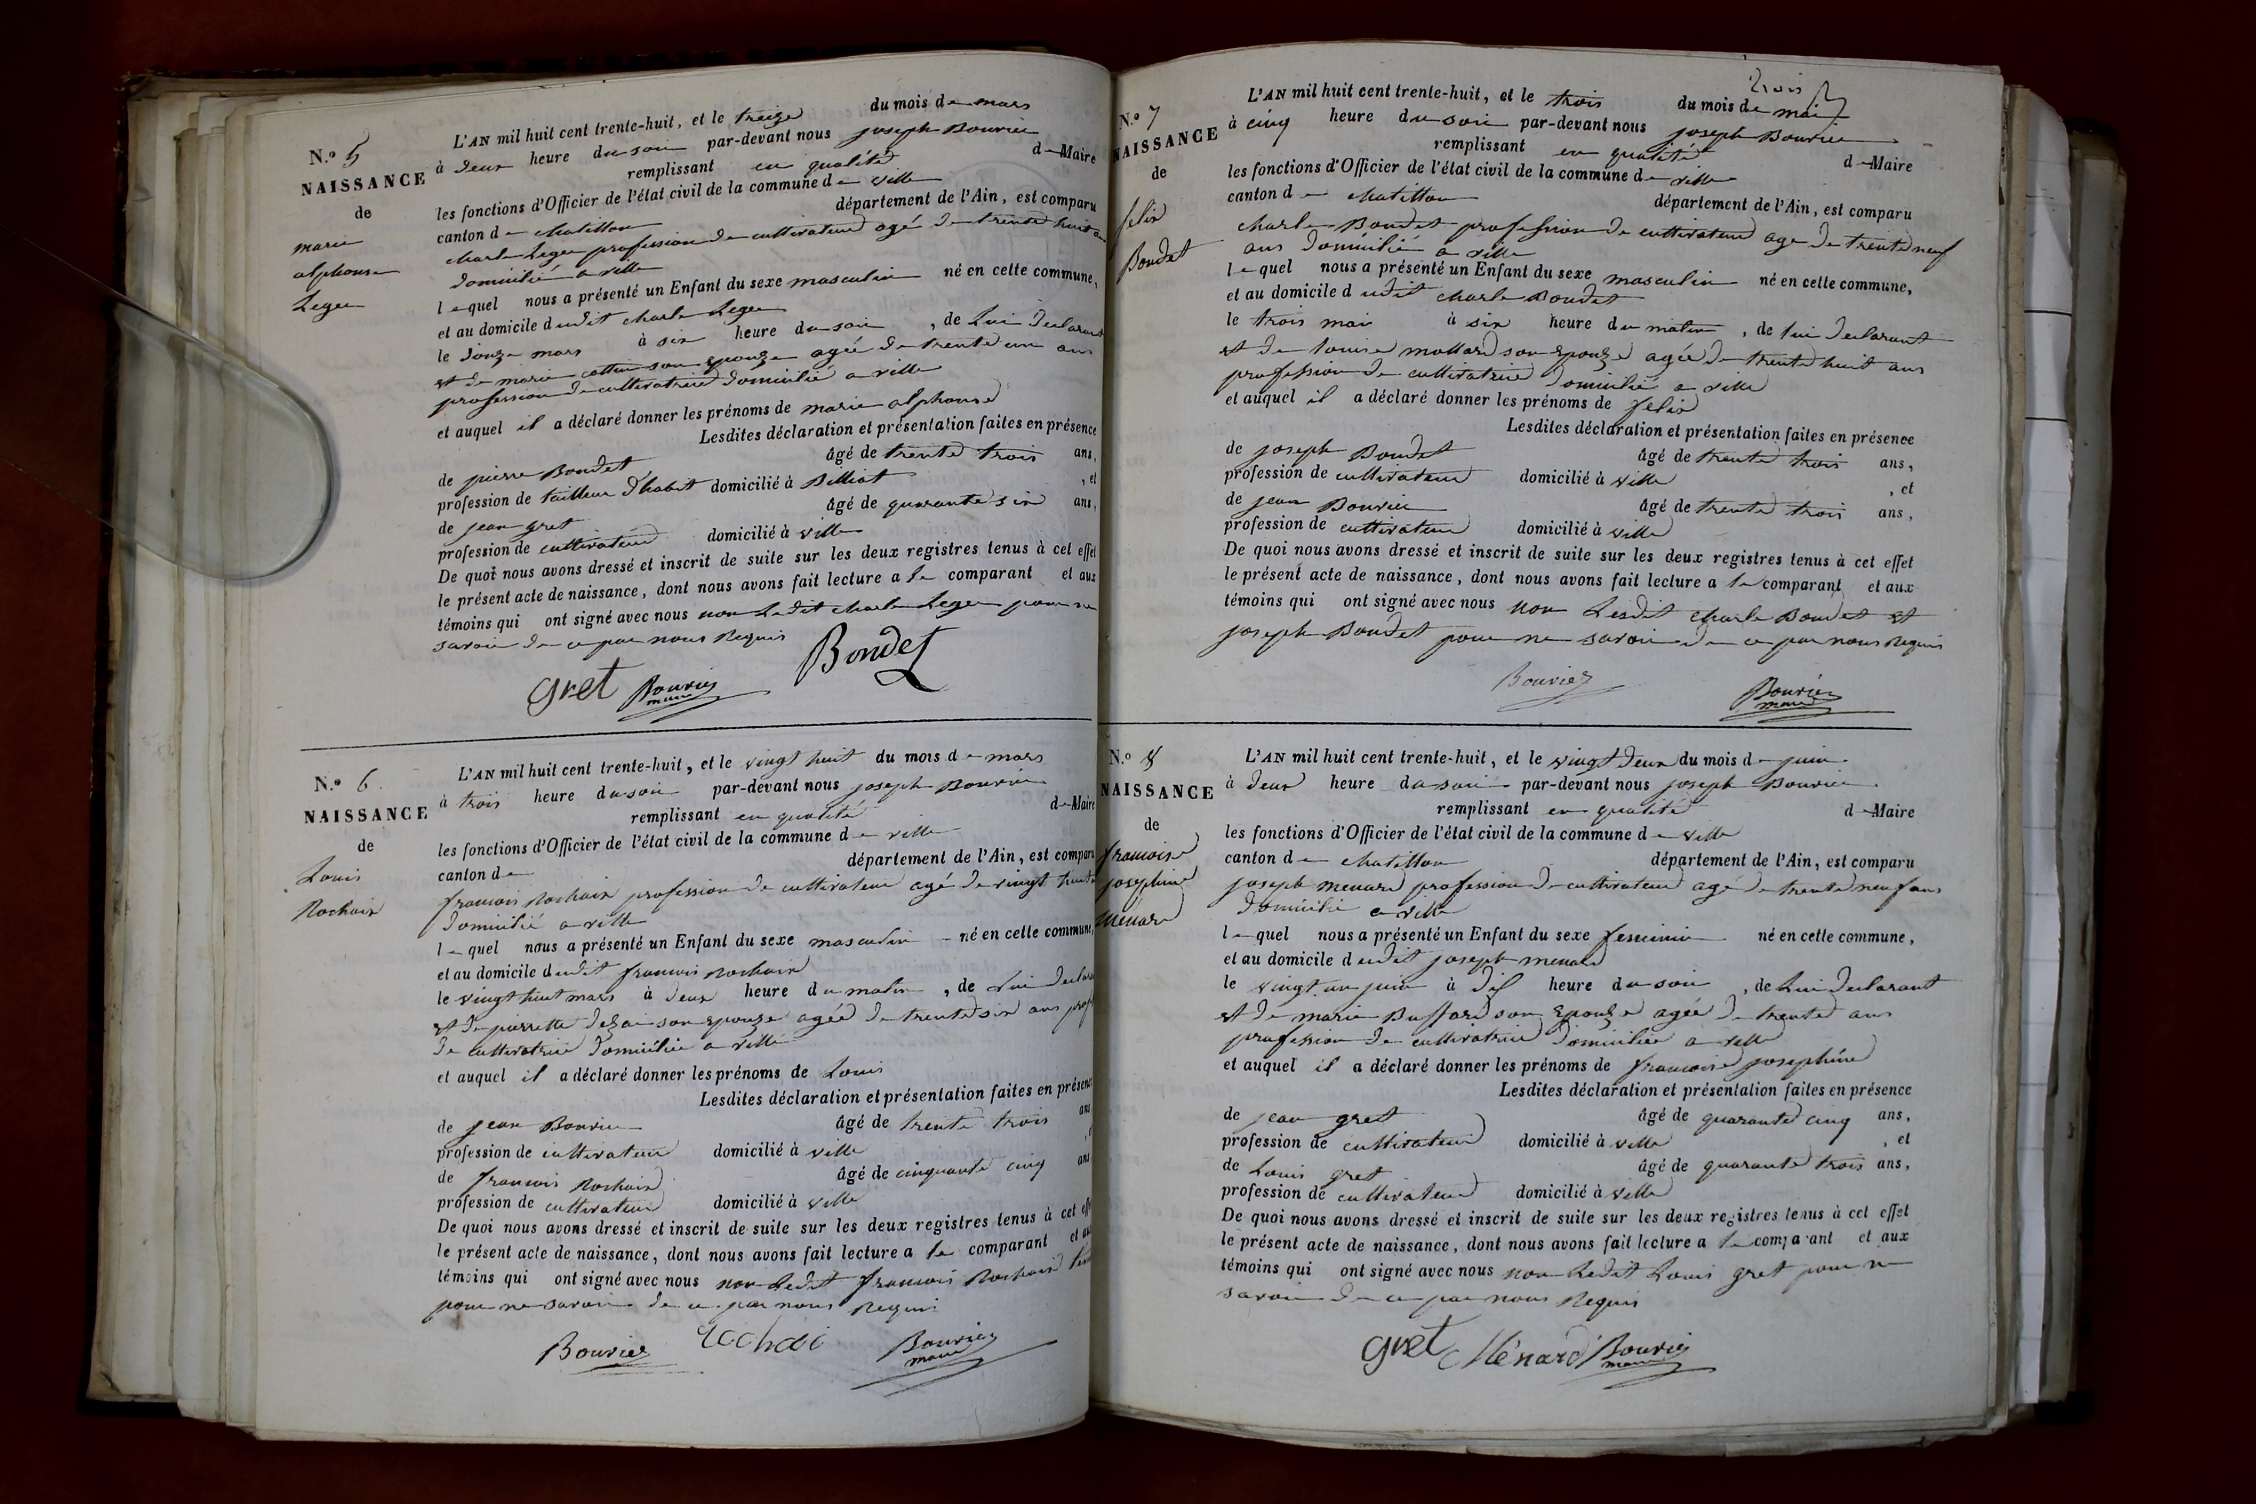 N.º 5
NAISSANCE
de
marie
alphonse
Leger
L'AN mil huit cent trente-huit, et le treize du mois de mars
à deux heure du soir par-devant nous joseph Bouvier
remplissant en qualité de Maire
les fonctions d'Officier de l'état civil de la commune de ville
canton de chatillon département de l'Ain, est comparu
charle Leger profession de cultivateur agé de trente huit ans
domicilié a ville
lequel nous a présenté un Enfant du sexe masculin né en cette commune,
et au domicile dudit charle Leger
le douze mars à six heure du soir, de Lui Declarant
et de marie cottin son Epouze agée de trente un ans
profession de cultivatrice domicilié a ville
et auquel il a déclaré donner les prénoms de marie alphonse
Lesdites déclaration et présentation faites en présence
de pierre Boudet âgé de trente trois ans,
profession de tailleur d'habit domicilié à Billiat, et
de jean gret âgé de quarante six ans,
profession de cultivateur domicilié à ville
De quoi nous avons dressé et inscrit de suite sur les deux registres tenus à cet effet
le présent acte de naissance, dont nous avons fait lecture a le comparant et aux
témoins qui ont signé avec nous non Ledit charle Leger pour ne
savoir de ce par nous Requis
Boudet
gret Bouvier
maire
N.º 6.
NAISSANCE
de
Louis
Rochaix
L'AN mil huit cent trente-huit, et le vingt huit du mois de mars
à trois heure du soir par-devant nous joseph Bouvier
remplissant en qualité de Maire
les fonctions d'Officier de l'état civil de la commune de ville
canton de département de l'Ain, est comparu
francois Rochaix profession de cultivateur agé de vingt huit
domicilié a ville
lequel nous a présenté un Enfant du sexe masculin né en cette commune,
et au domicile dudit francois Rochaix
le vingt huit mars à deux heure du matin, de Lui Declarant
et de pierrette son Epouze agée de trente six ans prof
de cultivatrice domiciliée a ville
et auquel il a déclaré donner les prénoms de Louis
Lesdites déclaration et présentation faites en présence
de jean Bouvier âgé de trente trois ans
profession de cultivateur domicilié à ville
de francois Rochaix âgé de cinquante cinq ans
profession de cultivateur domicilié à ville
De quoi nous avons dressé et inscrit de suite sur les deux registres tenus à cet effet
le présent acte de naissance, dont nous avons fait lecture a le comparant et aux
témoins qui ont signé avec nous non Ledit francois Rochaix
pour ne savoir de ce par nous Requis
Bouvier rochai Bouvier
maire
trois
N.º 7
NAISSANCE
de
felix
Boudet
L'AN mil huit cent trente-huit, et le trois du mois de mai
à cinq heure du soir par-devant nous joseph Bouvier
remplissant en qualité de Maire
les fonctions d'Officier de l'état civil de la commune de ville
canton de chatillon département de l'Ain, est comparu
charle Boudet profession de cultivateur age de trente neuf
ans domicilié a ville
lequel nous a présenté un Enfant du sexe masculin né en cette commune,
et au domicile dudit charle Boudet
le trois mai à six heure du matin, de lui Declarant
et de louise mollard son Epouze agée de trente huit ans
profession de cultivatrice domicilié a ville
et auquel il a déclaré donner les prénoms de felix
Lesdites déclaration et présentation faites en présence
de joseph Boudet âgé de trente trois ans,
profession de cultivateur domicilié à ville, et
de jean Bouvier âgé de trente trois ans,
profession de cultivateur domicilié à ville
De quoi nous avons dressé et inscrit de suite sur les deux registres tenus à cet effet
le présent acte de naissance, dont nous avons fait lecture a le comparant et aux
témoins qui ont signé avec nous non Lesdit charle Boudet et
joseph Boudet pour ne savoir de ce par nous Requis
Bouvier Bouvier
maire
N.º 8
NAISSANCE
de
francoise
josephine
menard
L'AN mil huit cent trente-huit, et le vingt deux du mois de juin
à deux heure du soir par-devant nous joseph Bouvier
remplissant en qualité de Maire
les fonctions d'Officier de l'état civil de la commune de ville
canton de chatillon département de l'Ain, est comparu
joseph menard profession de cultivateur agé de trente neuf ans
domicilié a ville
lequel nous a présenté un Enfant du sexe feminin né en cette commune,
et au domicile dudit joseph menard
le vingt un juin à dix heure du soir, de Lui Declarant
et de marie Buffard son Epouze agée de trente ans
profession de cultivatrice domiciliée a ville
et auquel il a déclaré donner les prénoms de francoise josephine
Lesdites déclaration et présentation faites en présence
de jean gret âgé de quarante cinq ans,
profession de cultivateur domicilié à ville, et
de Louis gret âgé de quarante trois ans,
profession de cultivateur domicilié à ville
De quoi nous avons dressé et inscrit de suite sur les deux registres tenus à cet effet
le présent acte de naissance, dont nous avons fait lecture a le comparant et aux
témoins qui ont signé avec nous non Ledit Louis gret pour ne
savoir de ce par nous Requis
gret Ménard Bouvier
maire